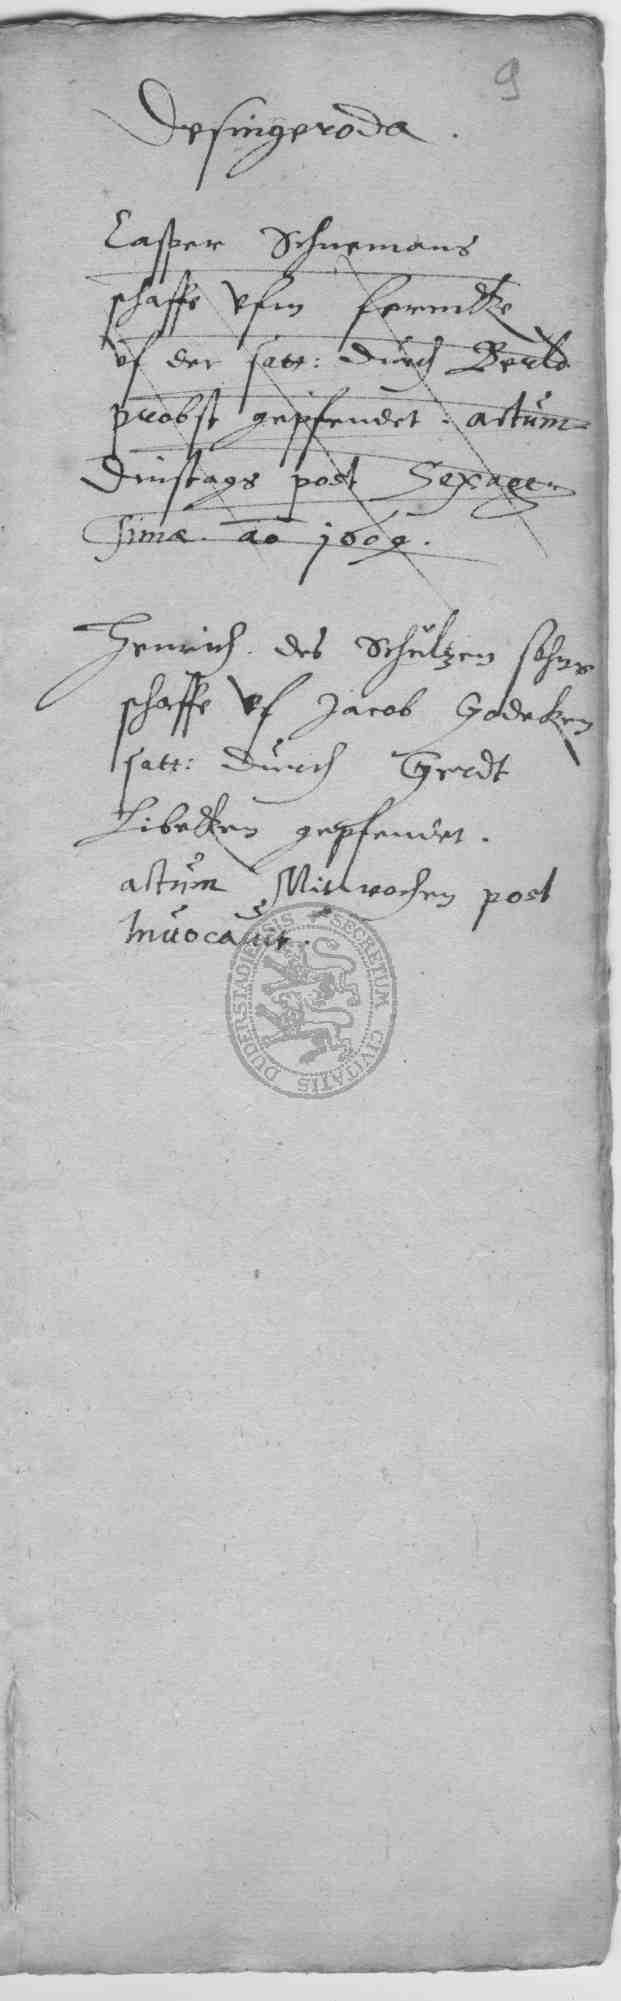 9
Desingeroda.
Casper Schuemans
schaffe vfm
vf der satt: durch Berld
probst gepfendet. actum
Dinstags post Sexage-
simæ. ao 1609.
Henrich des Schultzen sohns
schaffe vf Jacob Godeken
satt: durch Gerdt
Libecken gepfendet.
actum Mitwochen post
Inuocauit.
SECRETUM CIVITATIS DUDERSTADIENSIS